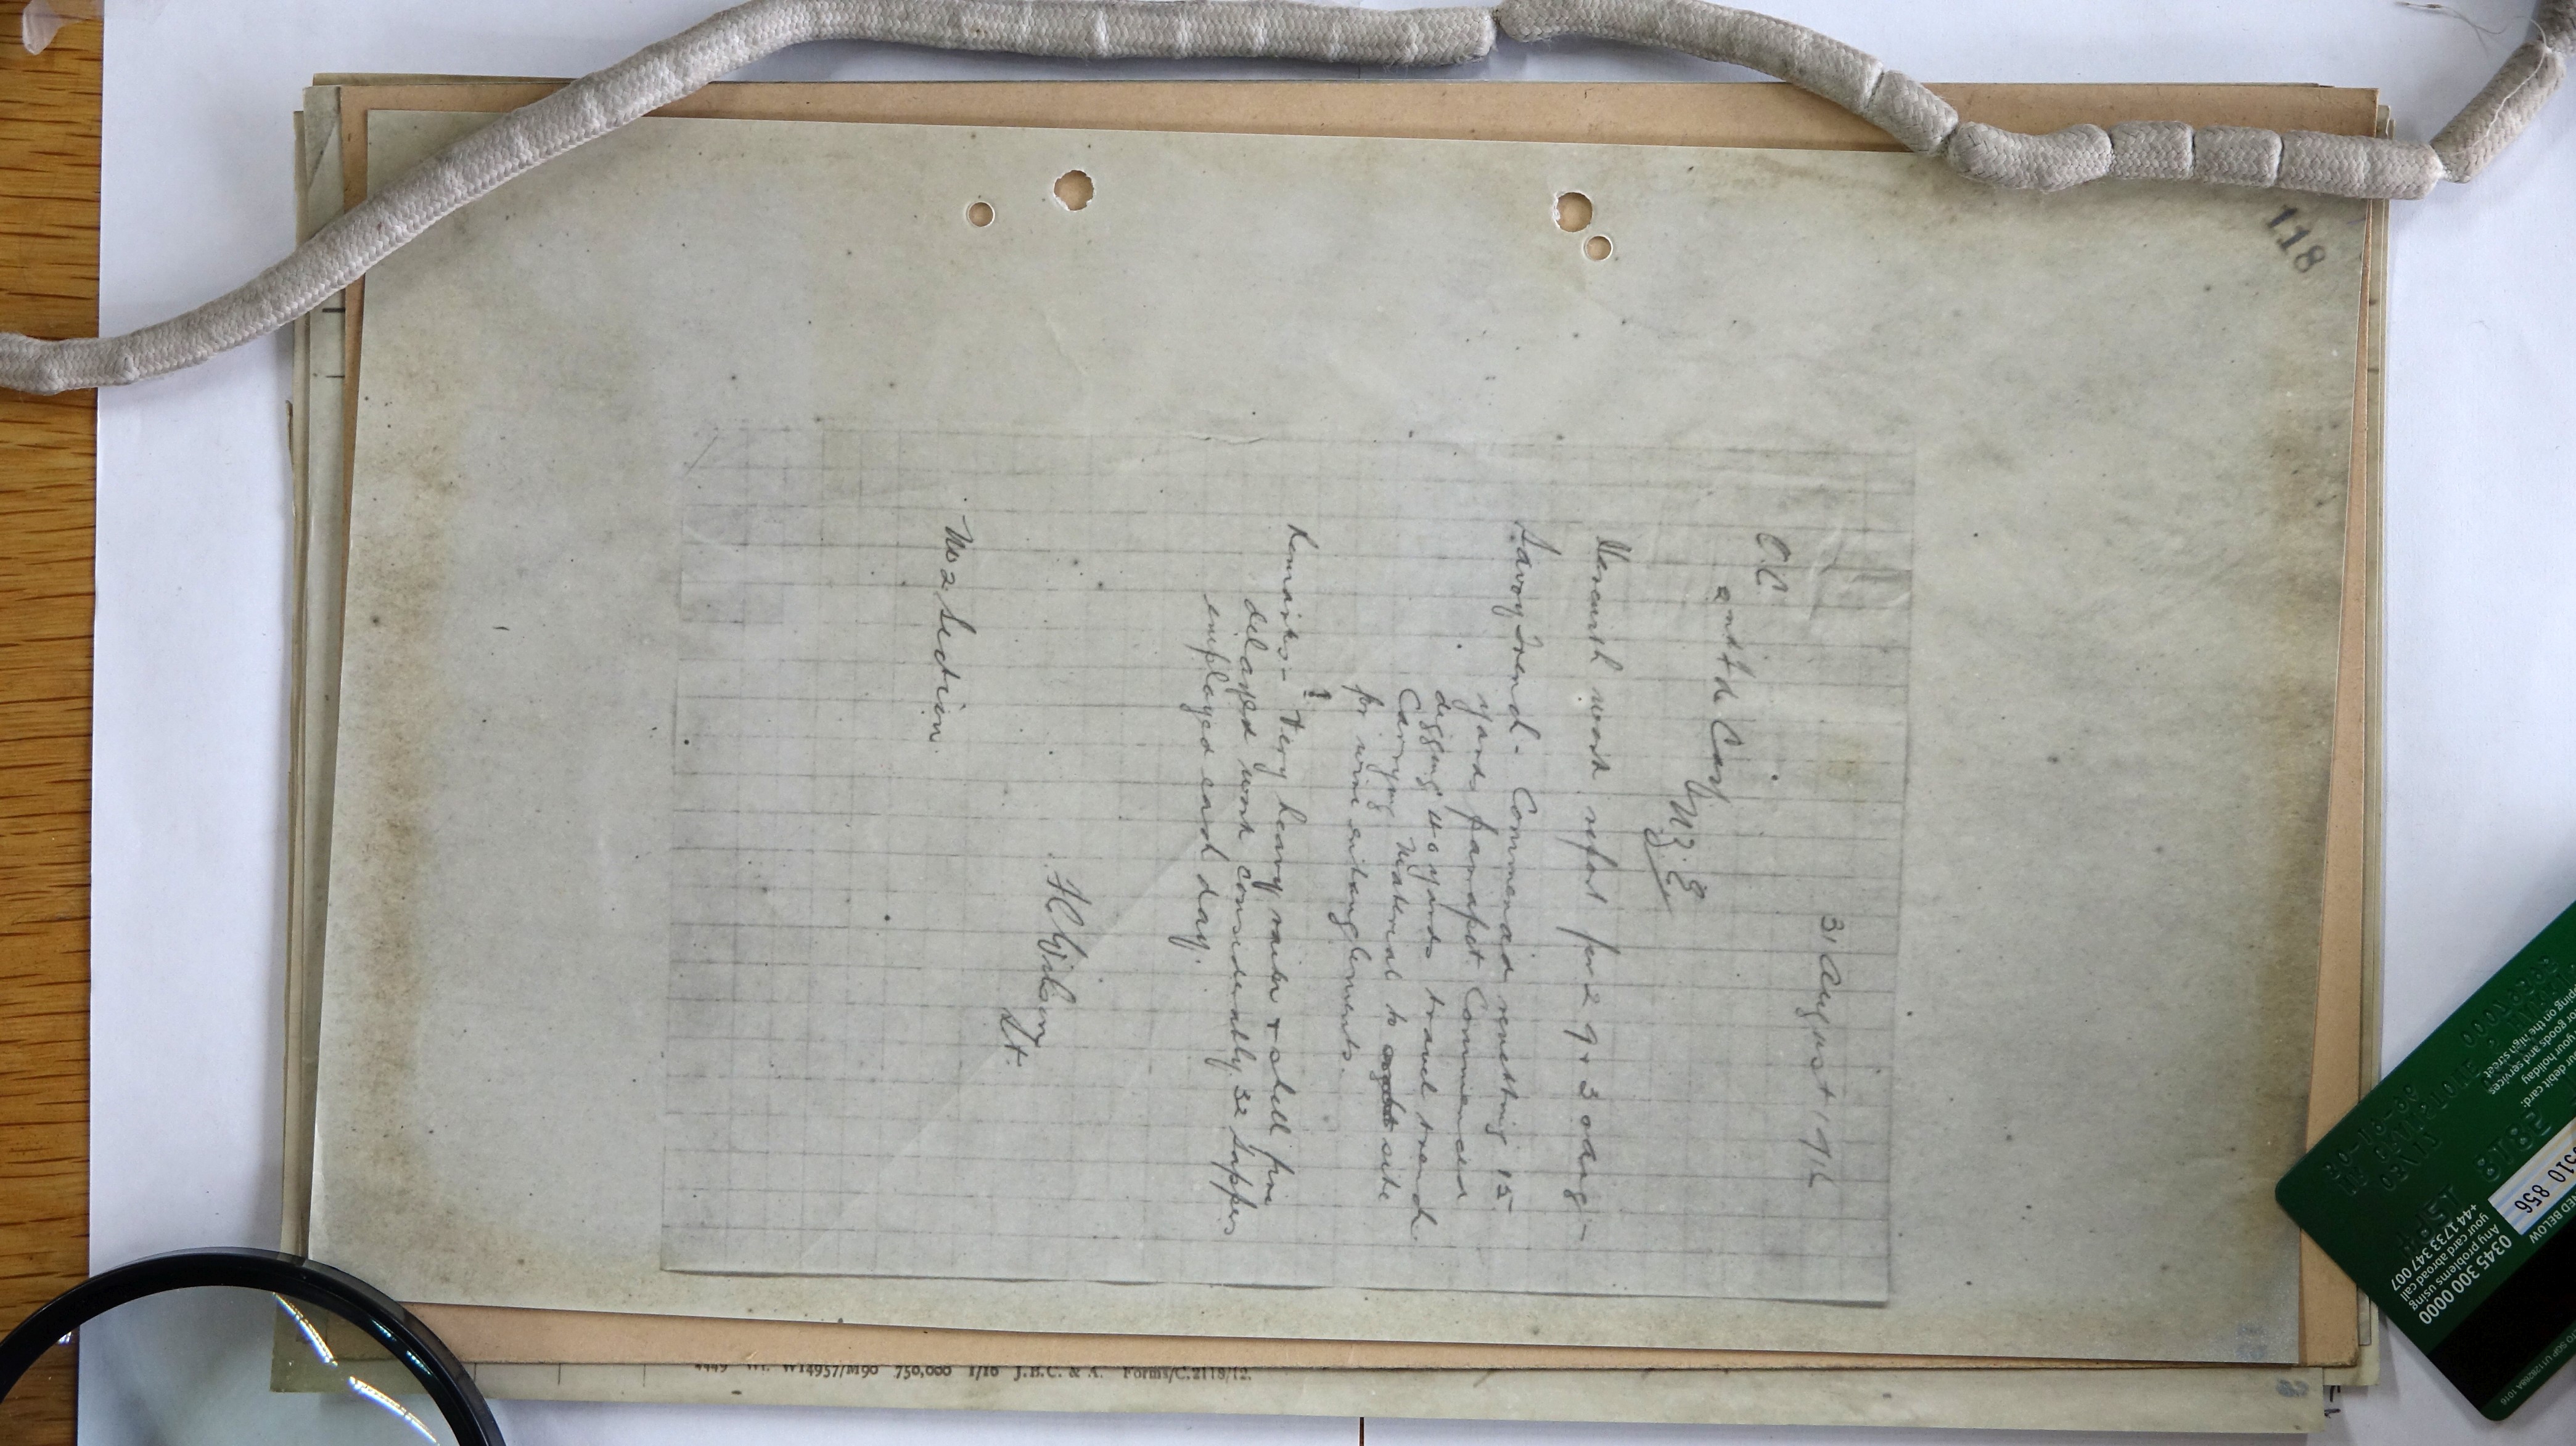 118
31 August 1916
OC
2nd Fd Coy
N.Z.E
Herewith work report for 29 + 30 Aug -
Savoy Trench - Commenced revetting 15
yards parapet Commenced
digging 40 yards travel trench
Carrying material to site
for wire entanglements.
Remarks - Very heavy rain + shell fire
delayed work considerably 32 Sappers
employed each day.
Lt.
No 2 Section.
4449 Wt. W14957/M90 750,000 1/16 J.B.C. & A. Forms/C.2118/12.
0345 300 0000
Any problems using
your card abroad call
+44 1733 347 007